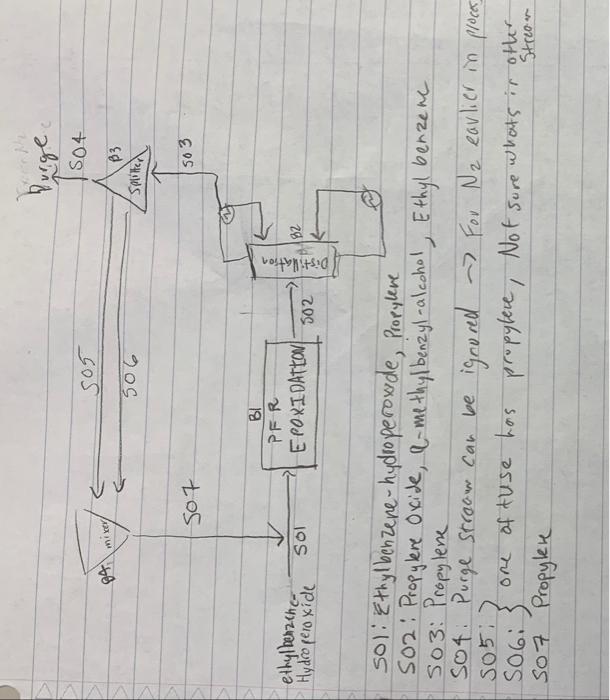 Purge
S04
B3
Splitter
S03
S05
S06
B4, mixer
S07
B1
PFR
EPOXIDATION
S02
B2
Distillation
S01
ethylbenzene-
Hydroperoxide
S01: Ethylbenzene-hydroperoxide, Propylene
S02: Propylene Oxide, α-methylbenzyl-alcohol, Ethyl benzene
S03: Propylene
S04: Purge Stream can be ignored → For N2 earlier in proces
S05: }
S06: } one of these has propylene, Not sure whats in other stream
S07 Propylene